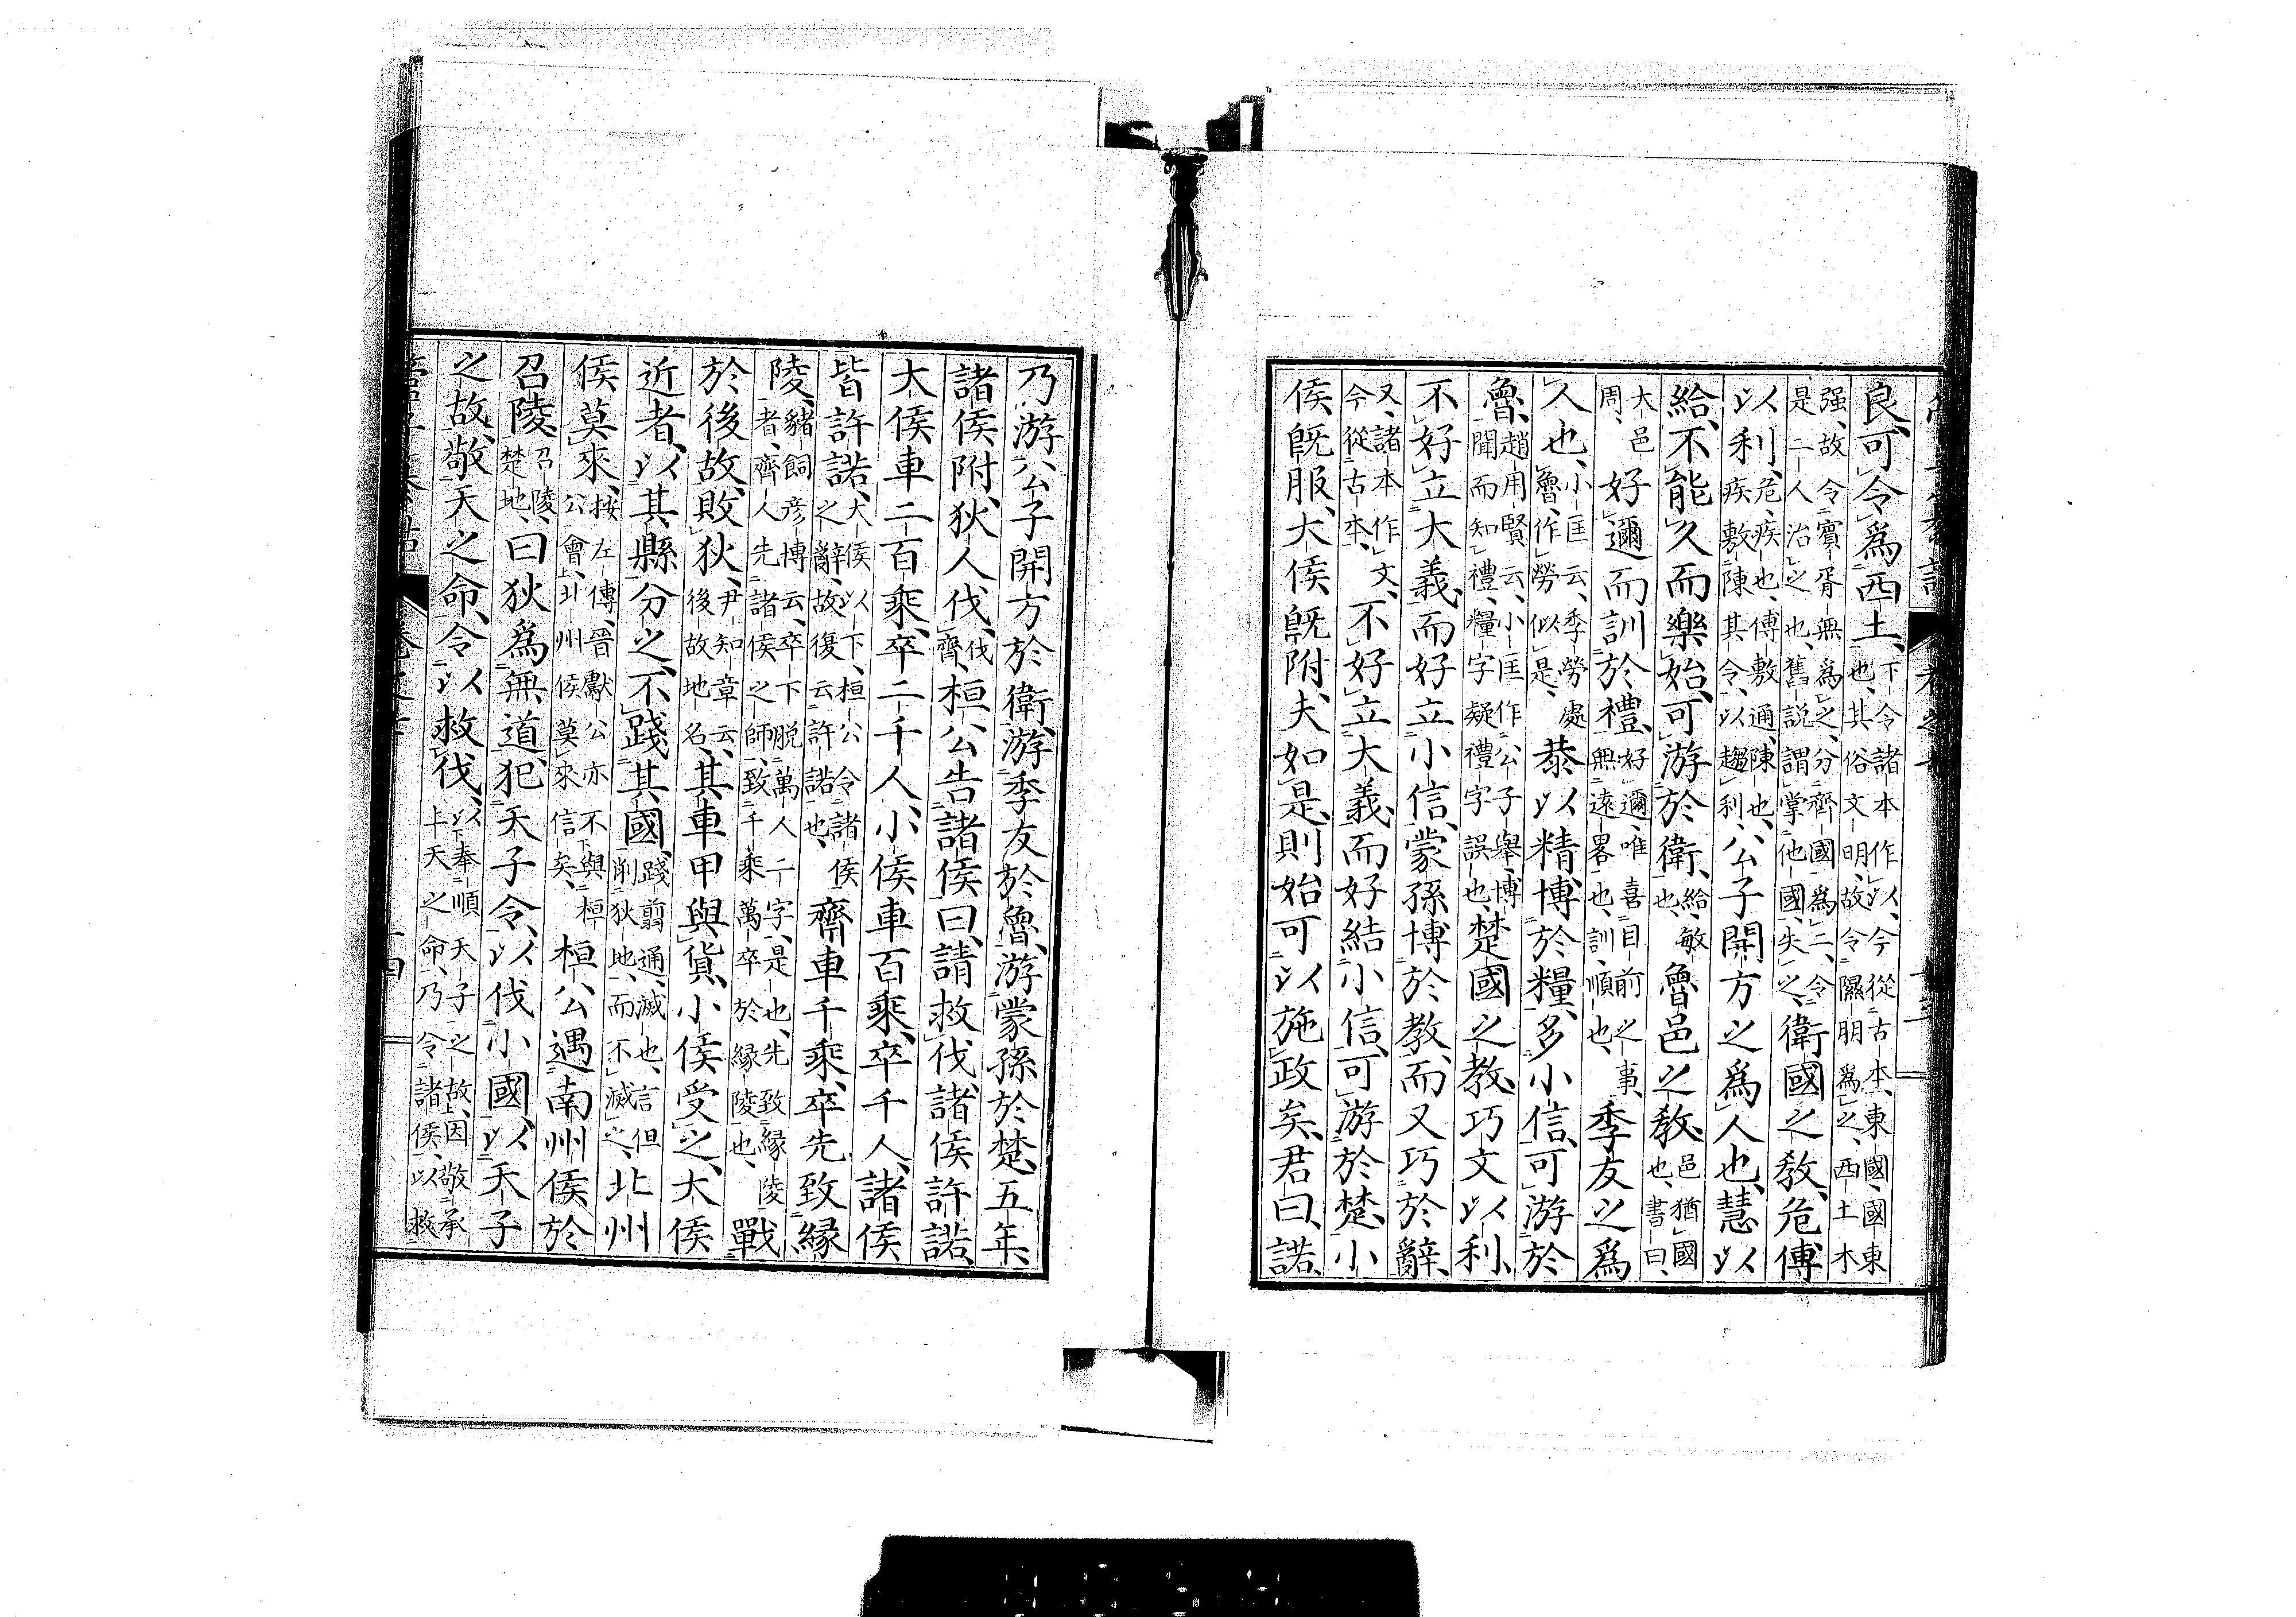 良、可令爲西土、下令諸本作以、今從古本、東國、國東也、其俗文明、故令隰朋爲之、西土木
强、故令賓胥無爲之、分齊國爲二、令是二人治之也、舊説謂掌他國、失之、衛國之教、危傅
以利、危、疾也、傅敷通、陳也、疾敷陳其令、以趨利、公子開方之爲人也、慧以
給、不能久而樂始、可游於衛、給、敏也、魯邑之教、邑猶國也、書曰、
大邑周、好邇而訓於禮、好邇、唯喜目前之事、無遠畧也、訓、順也、季友之爲
人也、小匡云、季勞處魯、作勞似是、恭以精、博於糧、多小信、可游於
魯、趙用賢云、小匡作公子舉、博聞而知禮、糧字疑禮字誤也、楚國之教、巧文以利、
不好立大義、而好立小信、蒙孫博於教、而又巧於辭、
又、諸本作文、今從古本、不好立大義、而好結小信、可游於楚、小
侯既服、大侯既附、夫如是、則始可以施政矣、君曰、諾、
乃游公子開方於衛、游季友於魯、游蒙孫於楚、五年、
諸侯附、狄人伐、伐齊、桓公告諸侯曰、請救伐、諸侯許諾、
大侯車二百乘、卒二千人、小侯車百乘、卒千人、諸侯
皆許諾、大侯以下、桓公令諸侯之辭、故復云許諾也、齊車千乘、卒先致緣
陵、豬飼彦博云、卒下脱萬人二字、是也、先致緣陵者、齊人先諸侯之師、致千乘萬卒於緣陵也、戰
於後故、敗狄、尹知章云、後故地名、其車甲與貨、小侯受之、大侯
近者、以其縣分之、不踐其國、踐翦通、滅也、言但削狄地、而不滅之、北州
侯莫來、按左傳、晉獻公亦不與桓公會、北州侯莫來信矣、桓公遇南州侯於
召陵、召陵、楚地、曰狄爲無道、犯天子令、以伐小國、以天子
之故、敬天之命、令以救伐、以下奉順天子之故、因敬承上天之命、乃令諸侯、以救